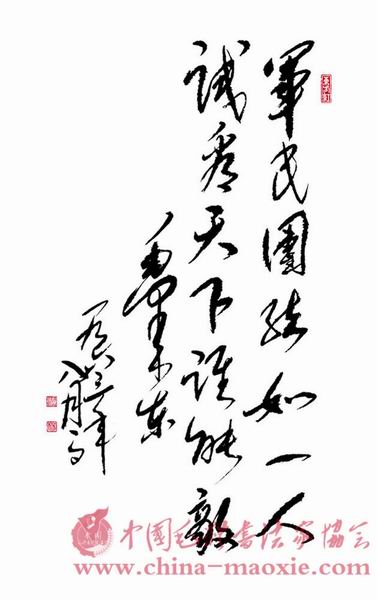 軍民團結如一人
試看天下誰能敵
毛澤东
一九六三年
八月一日
中國毛體書法家協会
www.china-maoxie.com